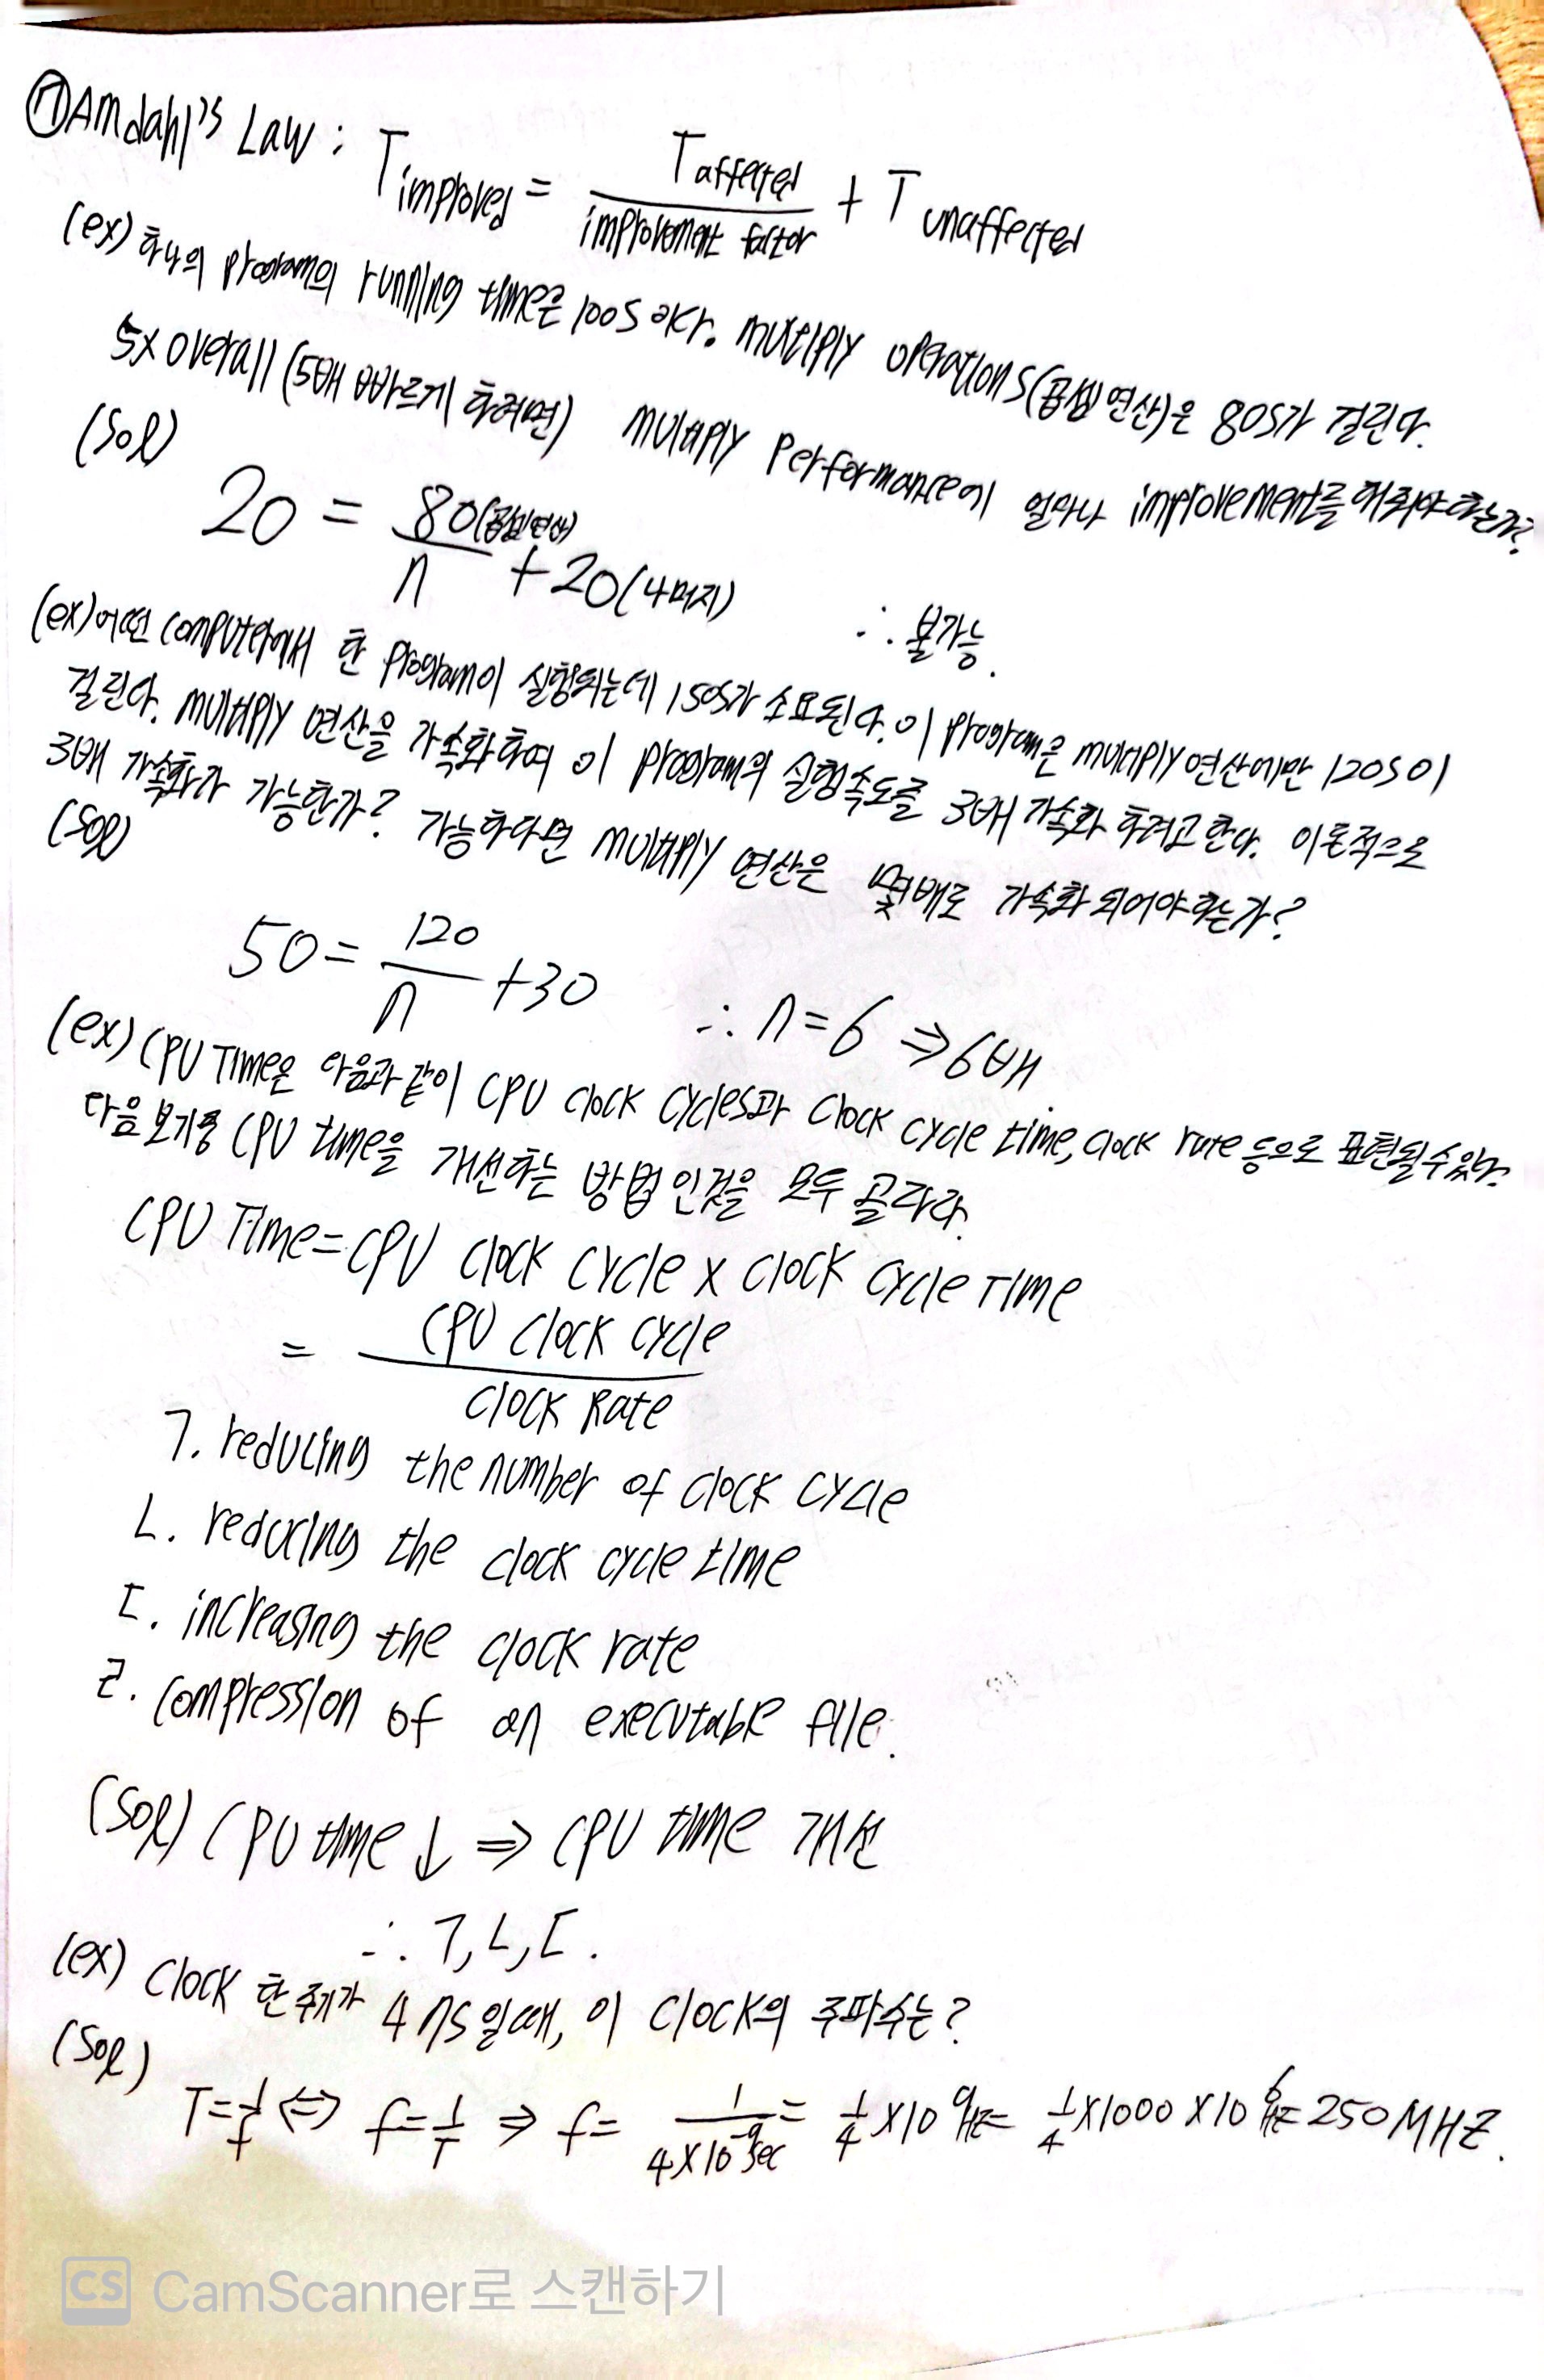 ⑦Amdahl's Law : T improved = T affected / improvement factor + T unaffected
(ex) 하나의 program의 running time은 100s 라. multiply operations(곱셈 연산)은 80s가 걸린다.
5x overall (5배 빠르게 하려면) multiply performance에 얼마나 improvement를 해줘야 하는가?
(sol)
20 = 80(곱셈연산) / n + 20(나머지) ∴ 불가능.
(ex) 어떤 computer에서 한 program이 실행되는데 150s가 소요된다. 이 program은 multiply 연산에만 120s이
걸린다. multiply 연산을 가속화하여 이 program의 실행속도를 3배 가속화 하려고 한다. 이론적으로
3배 가속화가 가능한가? 가능하다면 multiply 연산은 몇배로 가속화 되어야 하는가?
(sol)
50 = 120 / n + 30 ∴ n = 6 ⇒ 6배.
(ex) CPU Time은 다음과 같이 CPU clock cycles과 clock cycle time, clock rate 등으로 표현될 수 있다.
다음 보기중 CPU time을 개선하는 방법인것을 모두 골라라.
CPU Time = CPU clock cycle x clock cycle Time
= CPU clock cycle / clock Rate
ㄱ. reducing the number of clock cycle
ㄴ. reducing the clock cycle time
ㄷ. increasing the clock rate
ㄹ. compression of an executable file.
(sol) CPU time ↓ ⇒ CPU time 개선
∴ ㄱ, ㄴ, ㄷ.
(ex) Clock 한 주기가 4 ns 일때, 이 clock의 주파수는?
(sol)
T = 1/f ⇔ f = 1/T ⇒ f = 1 / 4×10⁻⁹sec = 1/4 ×10⁹Hz = 1/4 ×1000 ×10⁶Hz = 250 MHZ.
CS CamScanner로 스캔하기